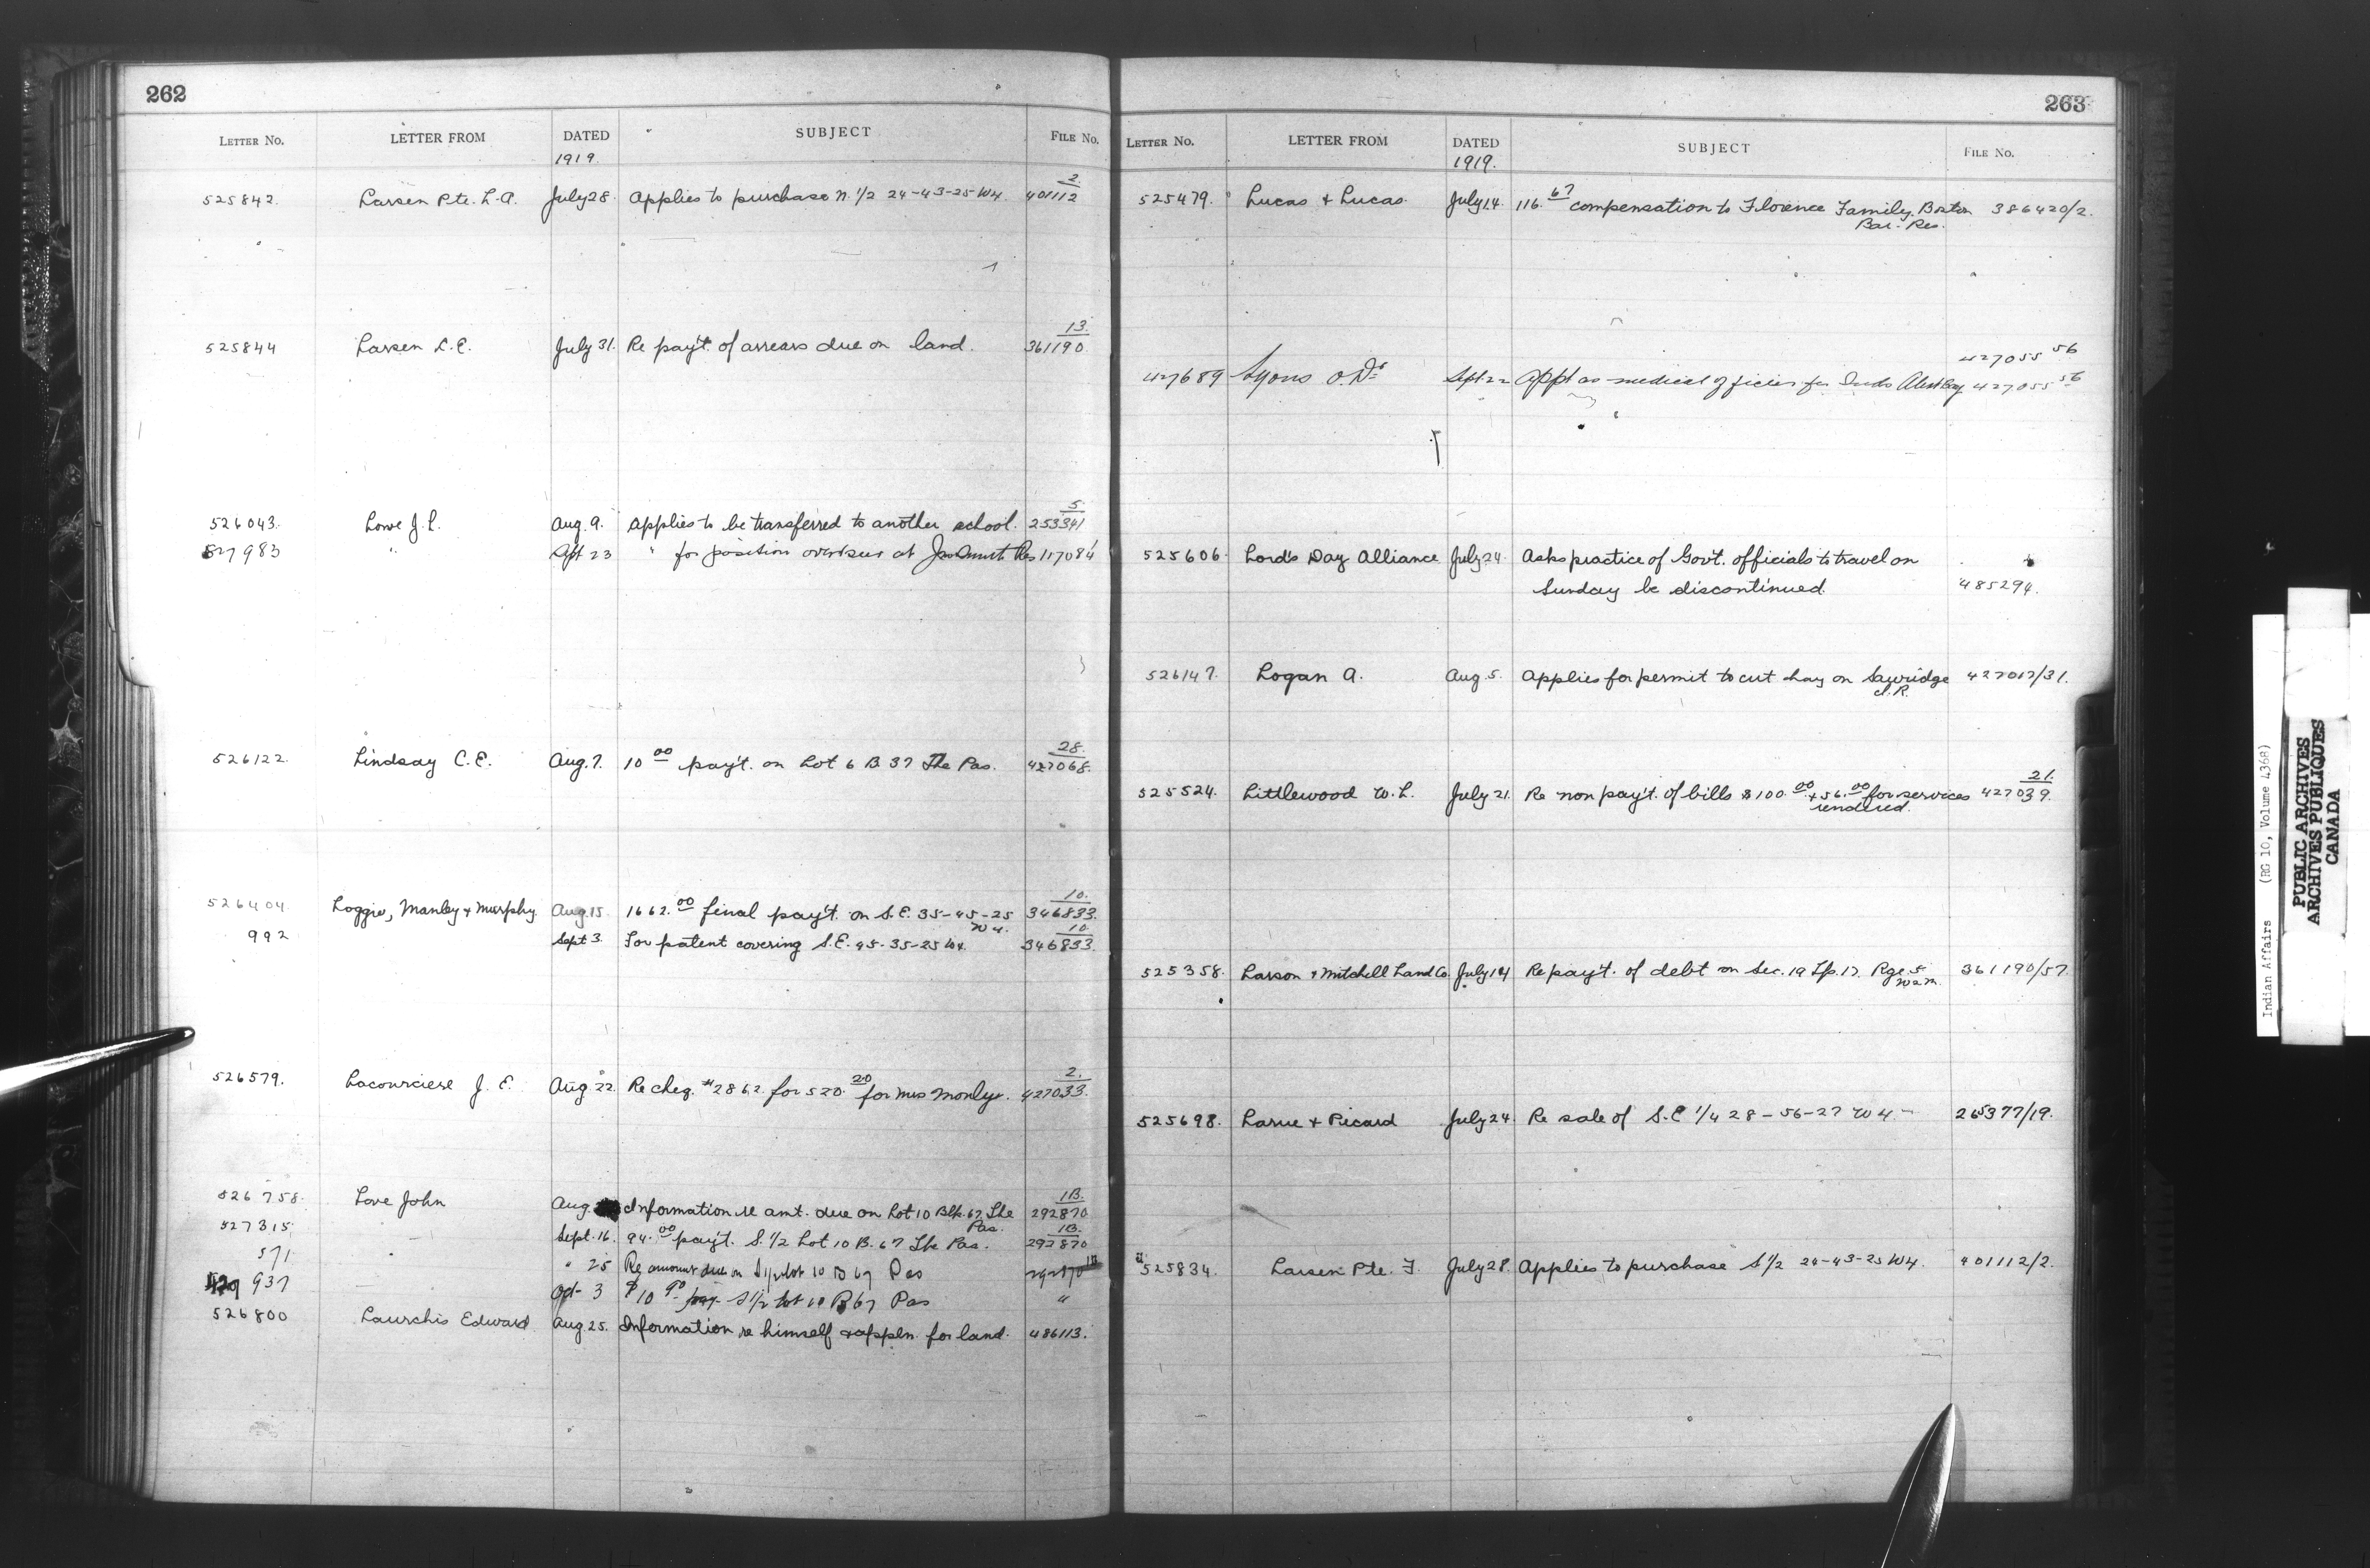 262
LETTER No. LETTER FROM DATED SUBJECT FILE No.
1919.
525842. Larsen Pte. L.A. July 28. Applies to purchase N. 1/2 24-43-25 W4. 2 401112
525844 Larsen L.E. July 31. Re pay't. of arrears due on land. 13. 361190
526043. Lowe J.L. Aug. 9. Applies to be transferred to another school. 5 253341
527983 " Sept 23 " for position overseer at Res 117084
526122. Lindsay C.E. Aug. 7. 10 00 pay't. on Lot 6 B 37 The Pas. 28. 427068.
526404. Loggie, Manley & Murphy. Aug. 15 1662. 00 final pay't. on S.E. 35-45-25 W4. 10. 346833.
992 Sept 3. For patent covering S.E. 45-35-25 W4. 10. 346833.
526579. Lacourciere J. E. Aug 22. Re cheq. #2862. for 520. 20 for Mrs 2. 427033.
526758. Love John Aug. Information re amt. due on Lot 10 Blk. 67 The Pas. 1B. 292870
527315 Sept. 16. 94. 00 pay't. S. 1/2 Lot 10 B. 67 The Pas. 1B. 292870
571 " " 25 Re amount due on S 1/2 Lot 10 B 67 Pas 292870 1B
937 — Oct 3 $10 00 pay S 1/2 Lot 10 B 67 Pas "
526800 Laurchis Edward Aug 25. Information re himself & appln. for land. 486113.
263
LETTER No. LETTER FROM DATED SUBJECT FILE No.
1919.
525479. Lucas & Lucas. July 14. 116. 67 compensation to Florence Family. Boston 386420/2.
Bar. Res.
427055 56
427689 Lyons O. Dr Sept 22 Appt as medical officier for Inds Alert Bay 427055 56
525606 Lord's Day Alliance July 24 Asks practice of Gov't. officials to travel on 4
Sunday be discontinued. 485294.
526147. Logan A. Aug. 5. Applies for permit to cut hay on Sawridge 427017/31.
I.R.
525524. Littlewood W.L. July 21. Re non pay't. of bills $100. 00 + 56. 00 for services 21. 427039.
rendered.
525358. Larson & Mitchell Land Co. July 14 Re pay't. of debt on Sec. 19 Tp. 17. Rge 5 361190/57.
W2M.
525698. Larue & Picard July 24. Re sale of S.E 1/4 28-56-27 W4.- 265377/19.
525834. Larsen Pte. F. July 28. Applies to purchase S 1/2 24-43-25 W4. 401112/2.
Indian Affairs (RG 10, Volume 4368)
PUBLIC ARCHIVES
ARCHIVES PUBLIQUES
CANADA